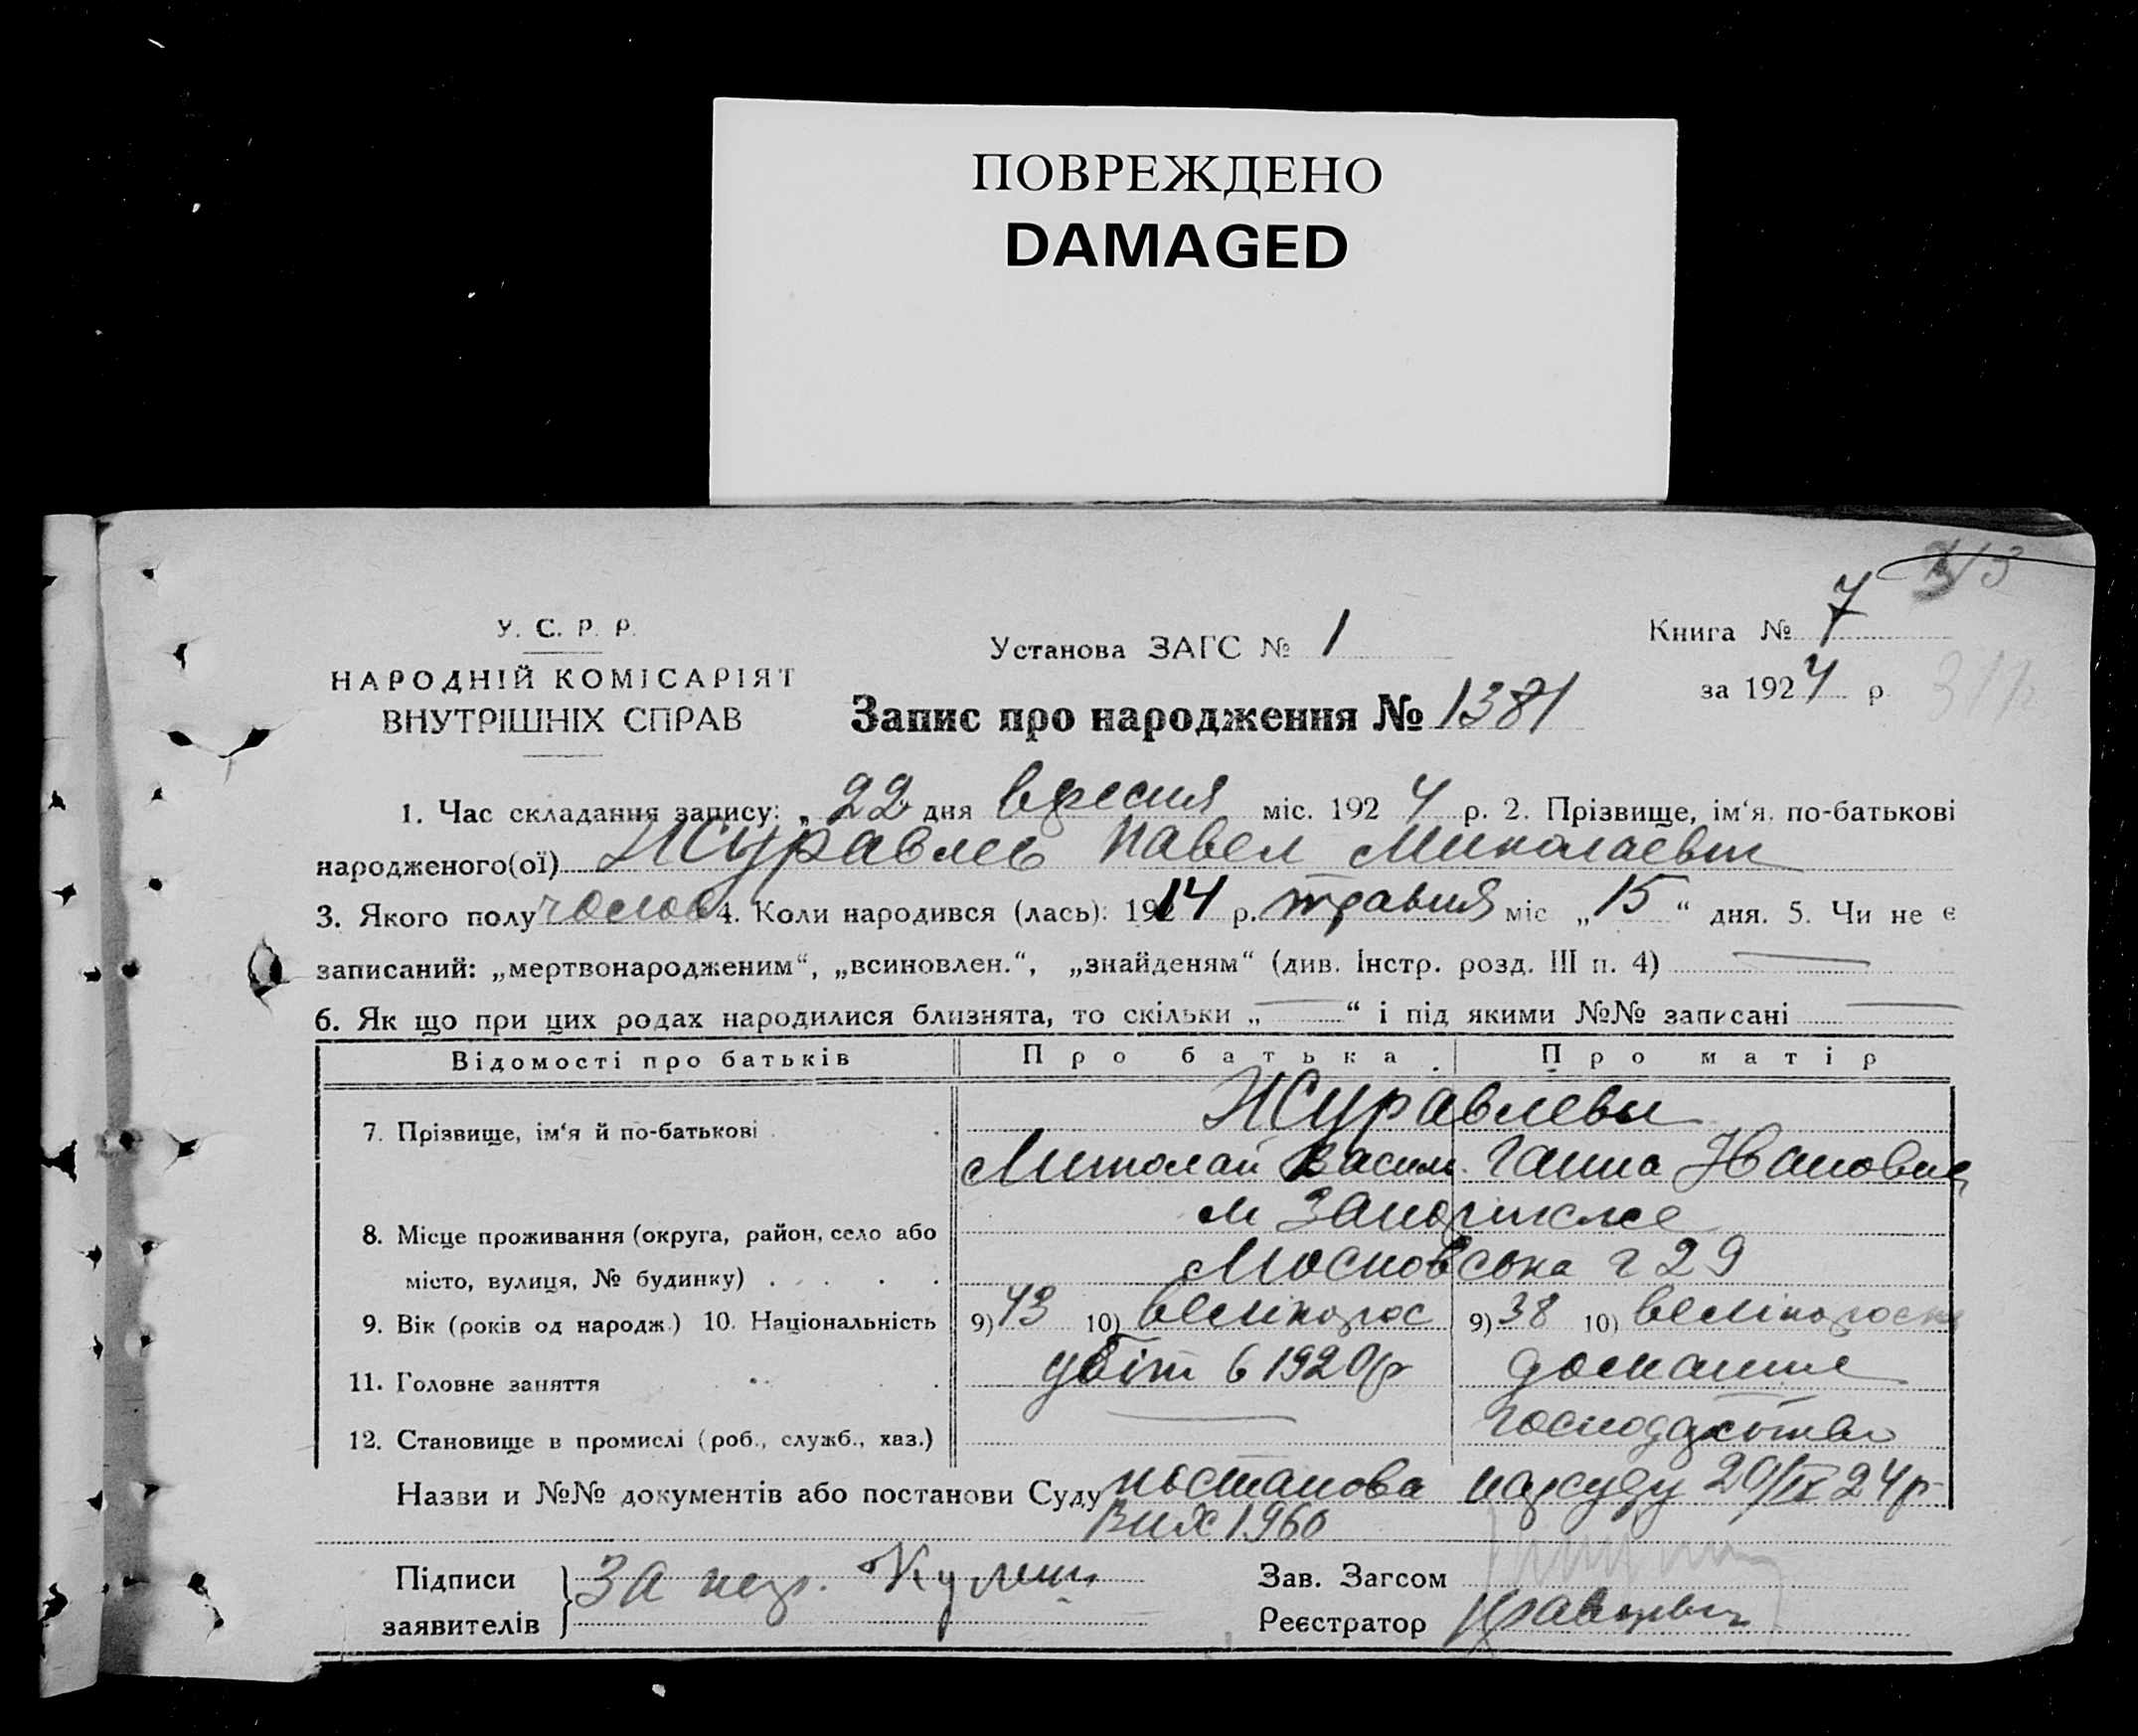 ПОВРЕЖДЕНО
DAMAGED
313
У. С. Р. Р.
НАРОДНІЙ КОМІСАРІЯТ
ВНУТРІШНІХ СПРАВ
Установа ЗАГС № 1
Запис про народження № 1381
Книга № 7
за 1924 р
1. Час складання запису: „22 дня вресня міс. 1924 р. 2. Прізвище, ім‘я, по-батькові
народженого(ої) Журавлев Павел Миколаевич
3. Якого полу чолов 4. Коли народився (лась): 1914 р. травня міс „15“ дня. 5. Чи не є
записаний: „мертвонародженим“, „всиновлен.“, „знайденям“ (див. Інстр. розд. III п. 4) —
6. Як що при цих родах народилися близнята, то скільки „—“ і під якими №№ записані —
Відомості про батьків Про батька Про матір
7. Прізвище, ім‘я й по-батькові Журавлевы
Миколай Васил. Ганна Ивановна
8. Місце проживання (округа, район, село або м Запоріжже
місто, вулиця, № будинку) Московська 29
9. Вік (років од народж.) 10. Національність 9) 43 10) великорос 9) 38 10) великороска
11. Головне заняття убіт в 1920 р домашне
12. Становище в промислі (роб., служб., хаз.) — господарство
Назви и №№ документів або постанови Суду постанова нарсуду 20/IX 24 р
1960
Підписи За негр. Кулиш Зав. Загсом
заявителів Реєстратор